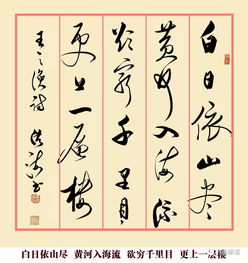 白日依山尽
黄河入海流
欲穷千里目
更上一层楼
王之涣诗
书
白日依山尽 黄河入海流 欲穷千里目 更上一层楼